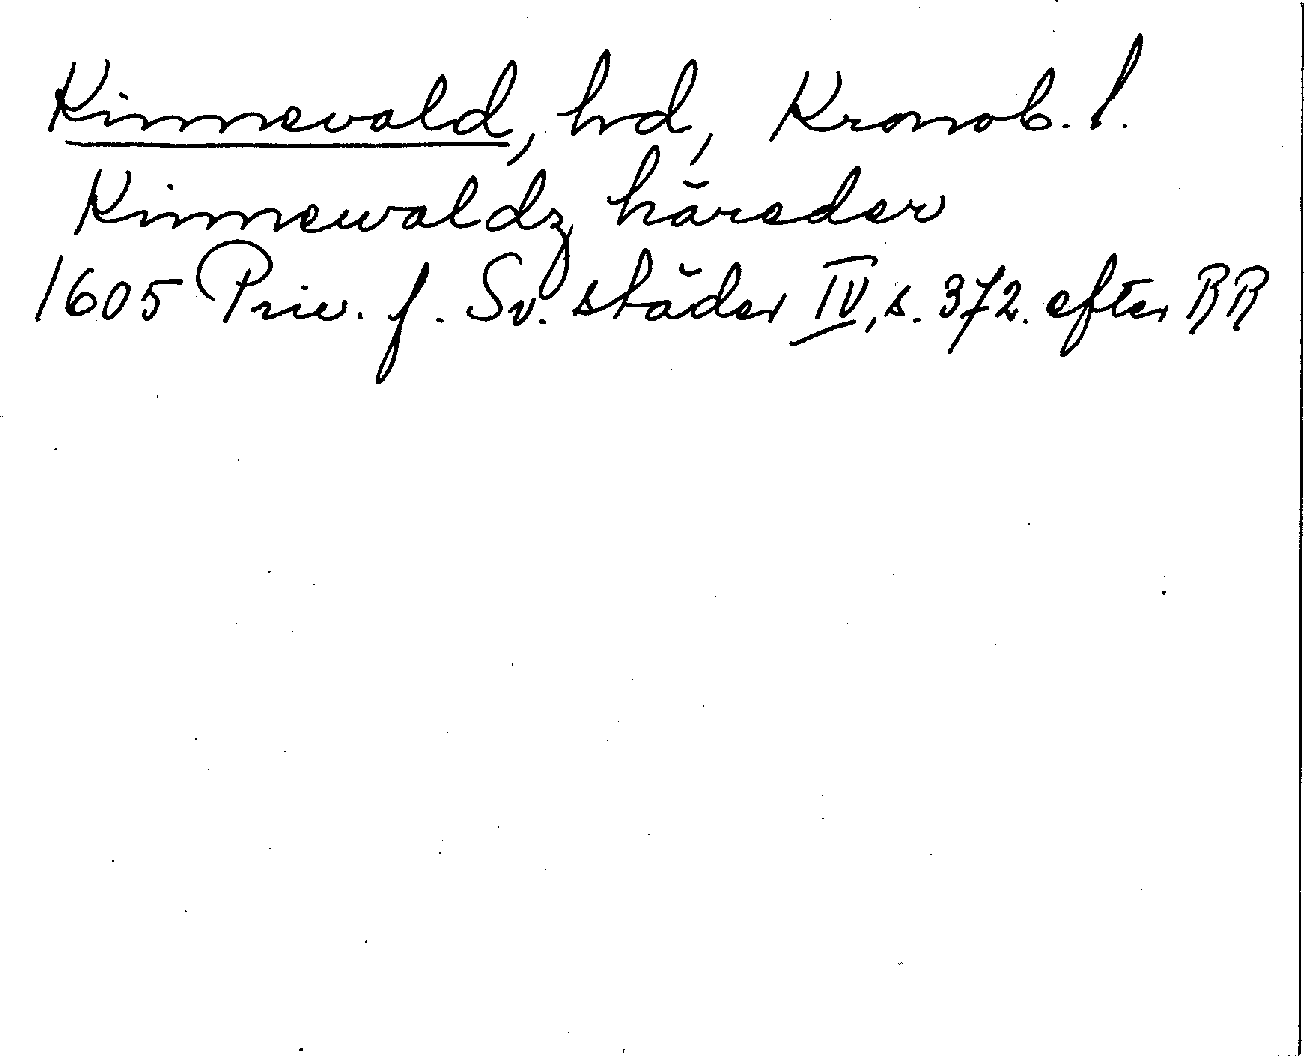 Kinnevald, hd, Kronob. l.
Kinnewaldz häreder
1605 Priv. f. Sv. städer IV, s. 372. efter RR